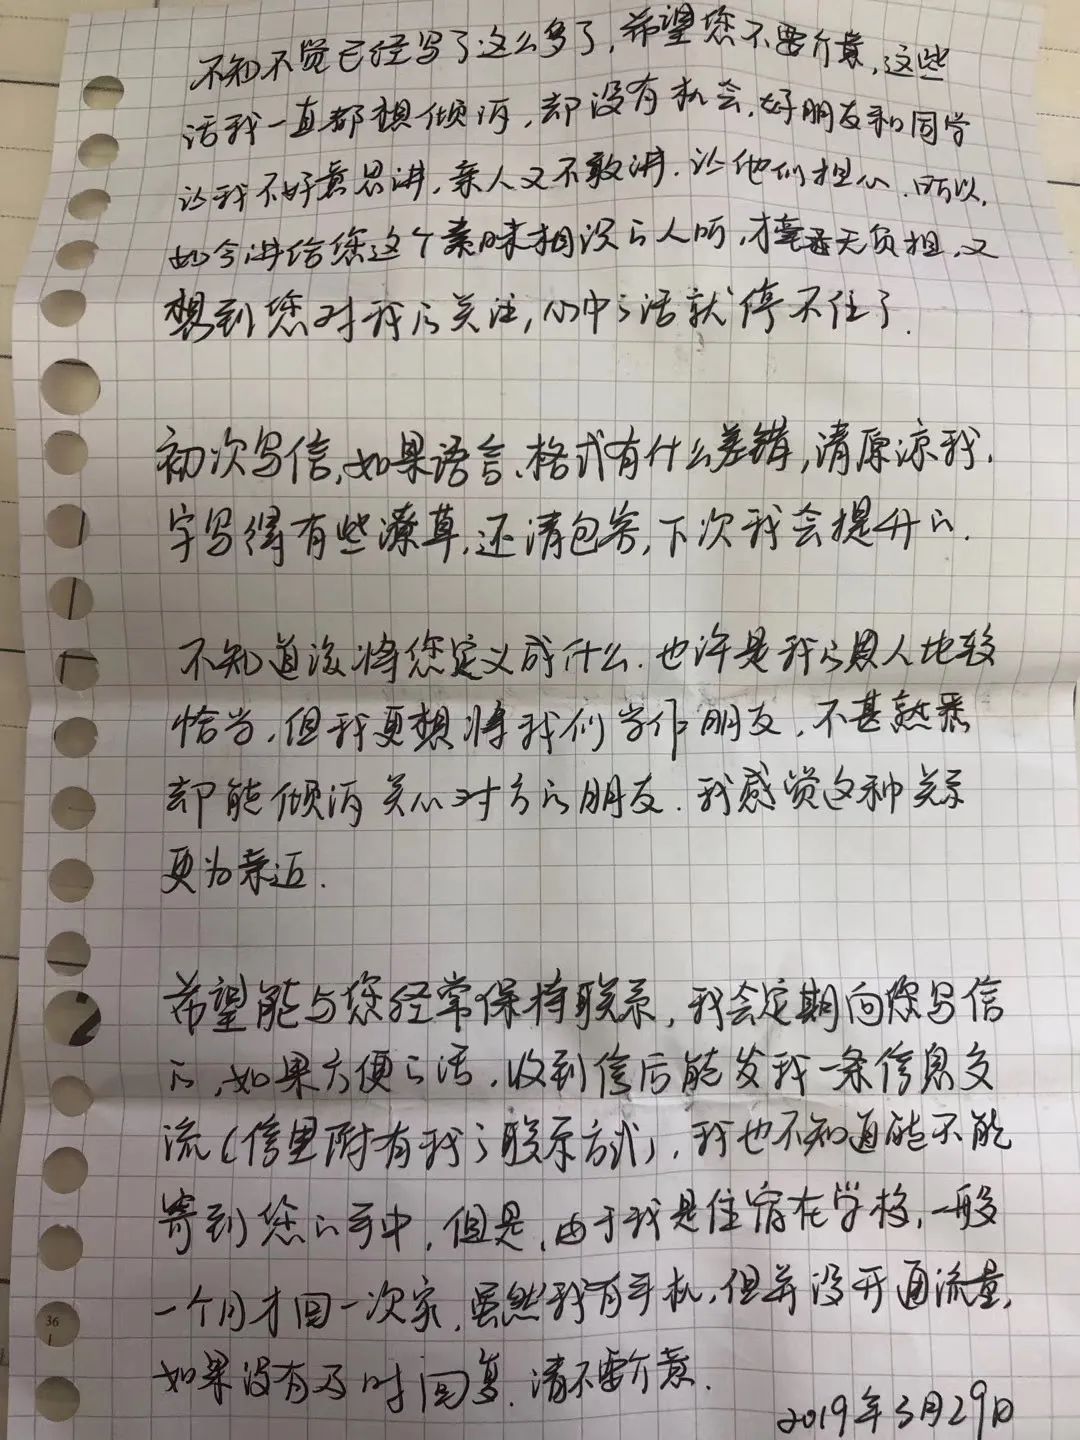 不知不觉已经写了这么多了,希望您不要介意,这些
话我一直都想倾诉,却没有机会.好朋友和同学
让我不好意思讲,亲人又不敢讲.让他们担心.所以,
如今讲给您这个素昧相识的人听,才毫无负担,又
想到您对我的关注,心中的话就停不住了.
初次写信,如果语言、格式有什么差错,请原凉我.
字写得有些潦草,还请包容,下次我会提升的.
不知道该将您定义成什么.也许是我的恩人比较
恰当,但我更想将我们当作朋友,不甚熟悉
却能倾诉关心对方的朋友.我感觉这种关系
更为亲近.
希望能与您经常保持联系,我会定期向您写信
的,如果方便的话,收到信后能发我一条信息交
流(信里附有我的联系方式),我也不知道能不能
寄到您的手中,但是,由于我是住宿在学校,一般
一个月才回一次家,虽然我有手机,但并没开通流量,
如果没有及时回复,请不要介意.
2019年3月29日
36